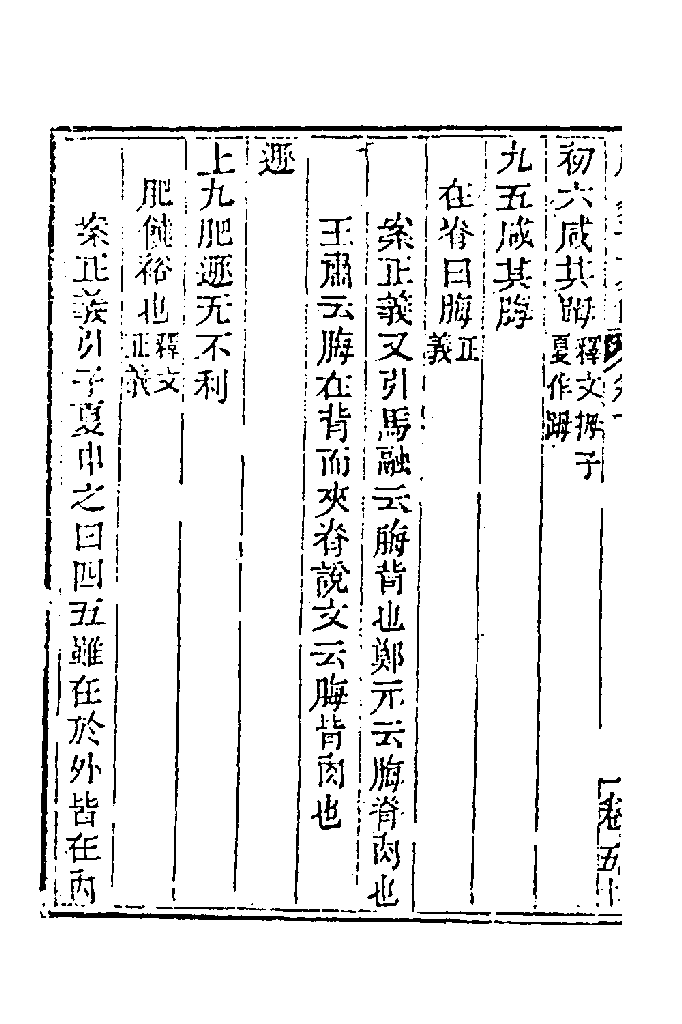 初六咸其䀲釋文拇子夏作踇
九五咸其脢
在脊曰脢正義
案正義又引馬融云脢背也鄭元云脢脊肉也
王肅云脢在背而夾脊說文云脢背肉也
遯
上九肥遯无不利
肥饒裕也釋文正義
案正義引子夏申之曰四五雖在於外皆在內
卷五十